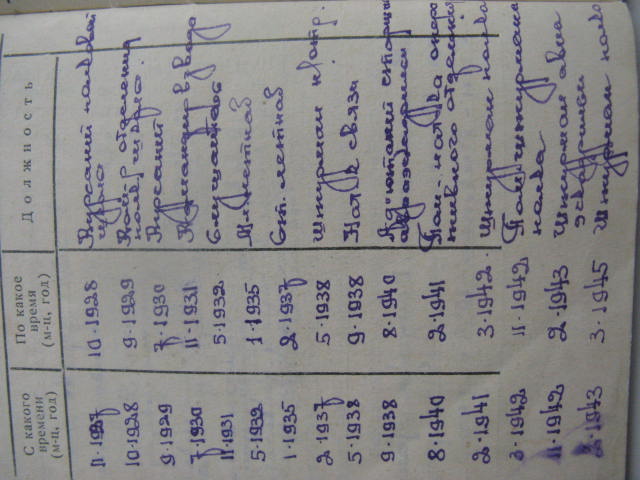 С какого времени (м-ц, год) По какое время (м-ц, год) Должность
11.1927 10.1928 Курсант полковой
школы
10.1928 9.1929 Ком-р отделения
полк. школы
9.1929 7.1930 Курсант
7.1930 11.1931 Командир взвода
11.1931 5.1932 Слушатель
5.1932 1.1935 Мл. летнаб
1.1935 2.1937 Ст. летнаб
2.1937 5.1938 Штурман к отр.
5.1938 9.1938 Нач-к связи
9.1938 8.1940 Адъютант старший
авиаэскадрильи
8.1940 2.1941 Пом. нач-ка опера
тивного отделения
2.1941 3.1942 Штурман полка
3.1942 11.1942 полка
11.1942 2.1943 Штурман авиа
эскадрильи
2.1943 3.1945 Штурман полка